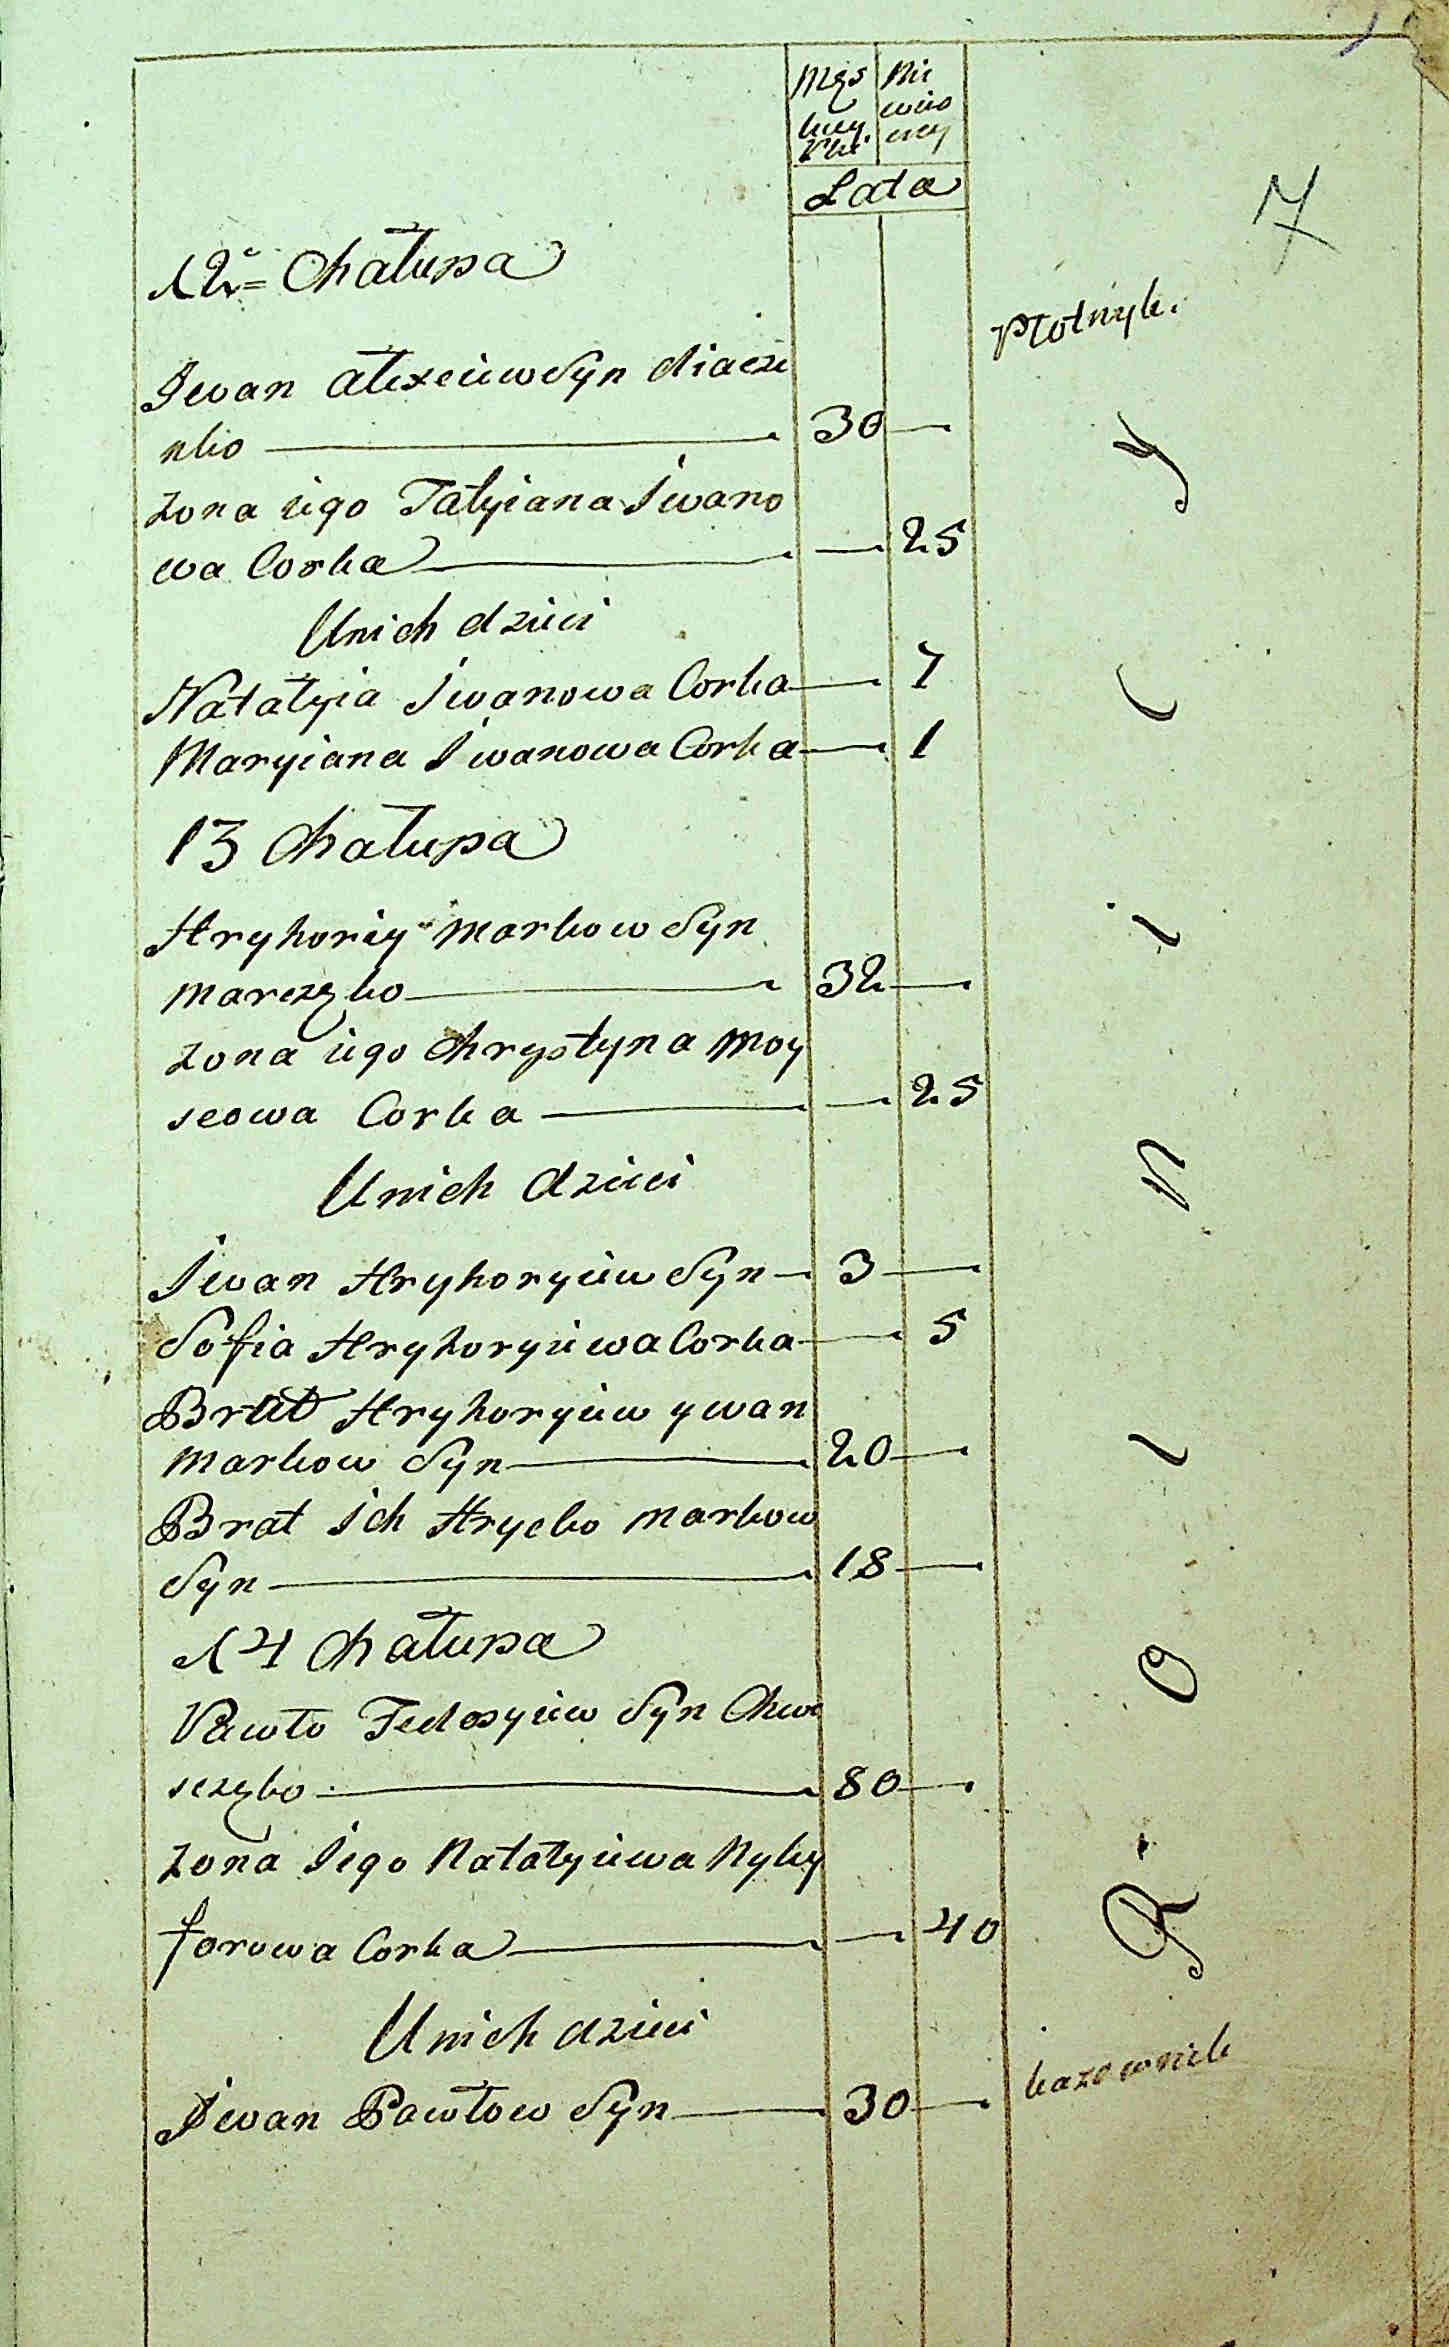 Męs Nie
kiey wieo
Płci. scy
Lata
7
12. Chałupa
Płotnyk.
Iwan Alexeiew Syn diacze
nko — 30 —
Zona iego Tatyiana Iwano
wa Corka — — 25
U nich dzieci
Natalyia Iwanowa Corka — 7
Maryiana Iwanowa Corka — 1
13 Chałupa
Hryhoriy Markow Syn
Marczęko — 32 —
Zona iego Chrystyna Moy
seowa Corka — — 25
U nich dzieci
Iwan Hryhoryiew Syn — 3 —
Sofia Hryhoryiewa Corka — 5
Brat Hryhoryiew ywan
Markow Syn — 20 —
Brat Ich Hrycko Markow
Syn — 18 —
14 Chałupa
Pawło Fedosyiew Syn Chwe
sczęko — 80 —
Zona Iego Natalyiewa Nyky
forowa Corka — — 40
U nich dzieci
Iwan Pawłow Syn — 30 —
kazownik
Rolnicy